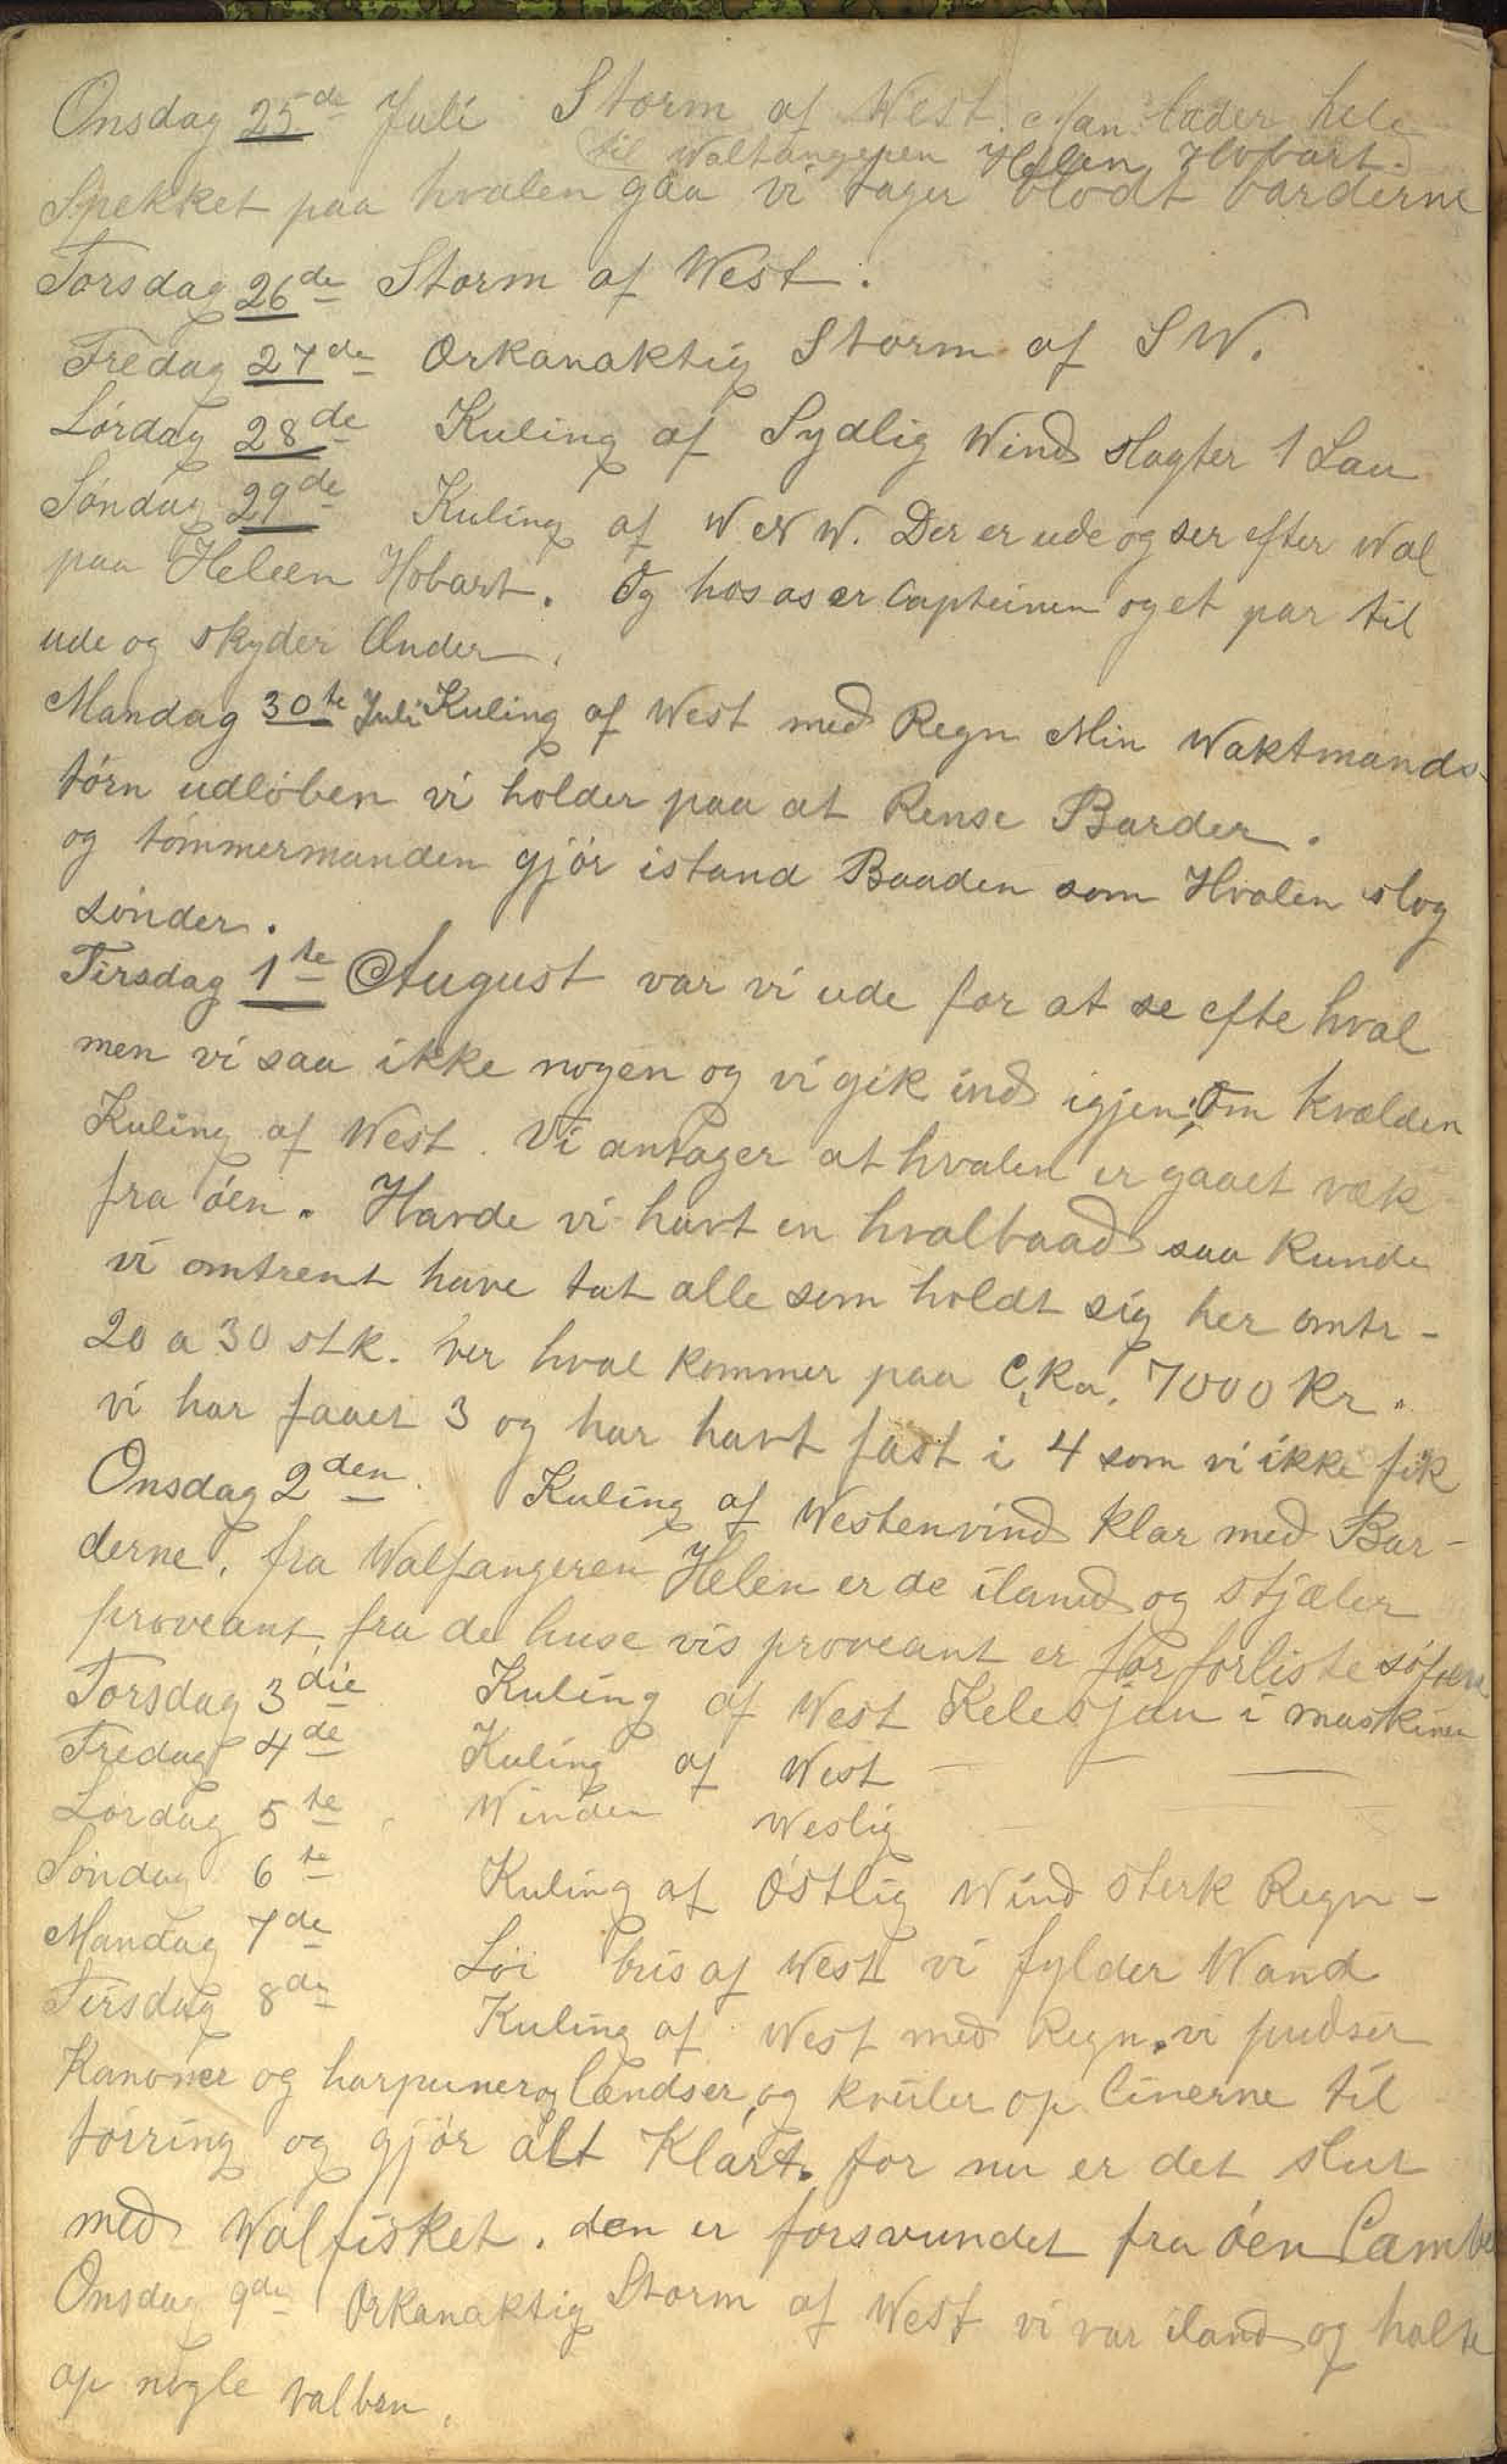 Onsdag 25de Juli Storm af West. Man lader hele
til Walfangeren Helen Hobart.
Spekket paa hvalen gaa vi tager blodt barderne
Torsdag 26de Storm af West.
Fredag 27de Orkanaktig Storm af SW.
Lórdag 28de Kuling af Sydlig Wind slagter 1 Sau
Sóndag 29de Kuling af W N W. Der er ude og ser efter Wal
paa Heleen Hobart. Og hos os er Capteinen og et par til
ude og skyder Ænder.
Mandag 30te Juli Kuling af West med Regn Min Waktmands-
tórn udlóben vi holder paa at Rense Barder.
og tómmermanden gjór istand Baaden som Hvalen slog
sónder.
Tirsdag 1te August var vi ude for at se efte hval
men vi saa ikke nogen og vi gik ind igjen; Om kvælden
Kuling af West. Vi antager at hvalen er gaaet væk
fra óen. Havde vi havt en hvalbaad saa kunde
vi omtrent have tat alle som holdt sig her omtr-
20 a 30 stk. hver hval kommer paa C,ka, 7000 Kr.
vi har faaet 3 og har havt fast i 4 som vi ikke fik
Onsdag 2den Kuling af Westenvind klar med Bar-
derne. fra Walfangeren Helen er de iland og stjæler
proveant, fra de huse vis proveant er for forliste sófolk
Torsdag 3die Kuling af West Kelesjau i maskinen
Fredag 4de Kuling af West — — —
Lórdag 5te Winden Weslig
Sóndag 6te Kuling af óstlig Wind sterk Regn -
Mandag 7de Lói bris af West vi fylder Wand
Tirsdag 8de Kuling af West med Regn. vi pudser
Kanoner og harpuner og lændser, og kveiler op linerne til
tórring og gjór alt Klart. for nu er det slut
med Walfisket. den er forsvundet fra óen Cambel
Onsdag 9de Orkanaktig Storm af West vi var iland og halte
op nogle valben.